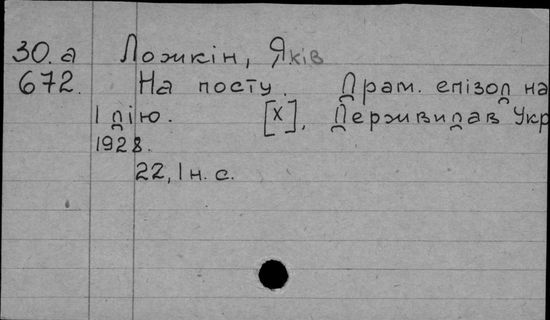 30.а Ложкін, Яків
672. На посту. Драм. епізод на
1 дію. [X], Держвидав Укр
1928.
22, 1 н. с.